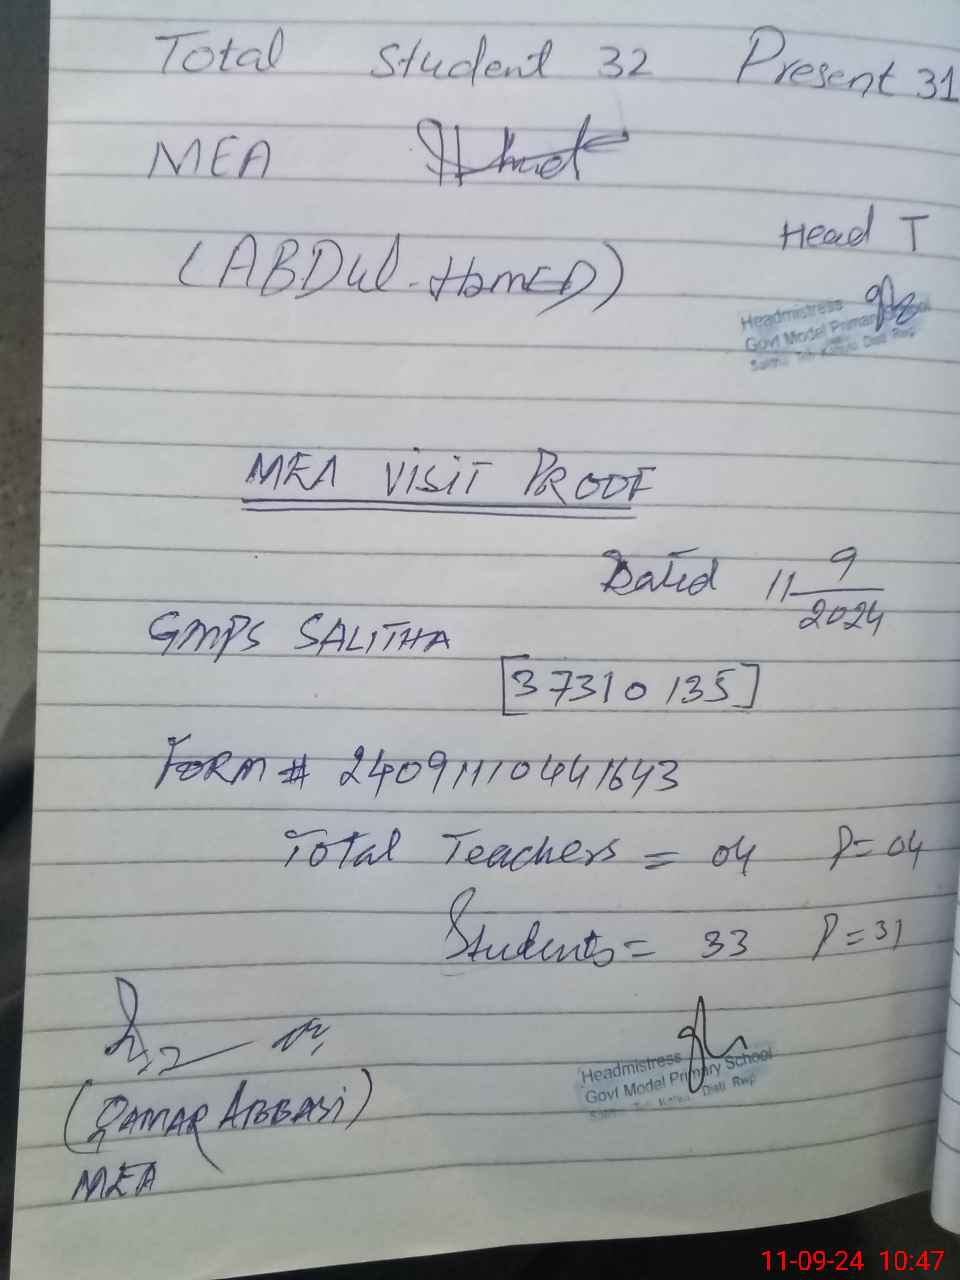 Total Student 32 Present 31
MEA
(ABDul-HamED)
Head T
Headmistress
Govt Model Primary School
Salitha Teh Kahuta Distt Rwp
MEA VISIT PROOF
Dated 11 9/2024
GMPS SALITHA
[37310135]
FORM # 24091110441643
Total Teachers = 04 P= 04
Students = 33 P = 31
Headmistress
Govt Model Primary School
Distt Rwp
(QAMAR ABBASI)
MEA
11-09-24 10:47